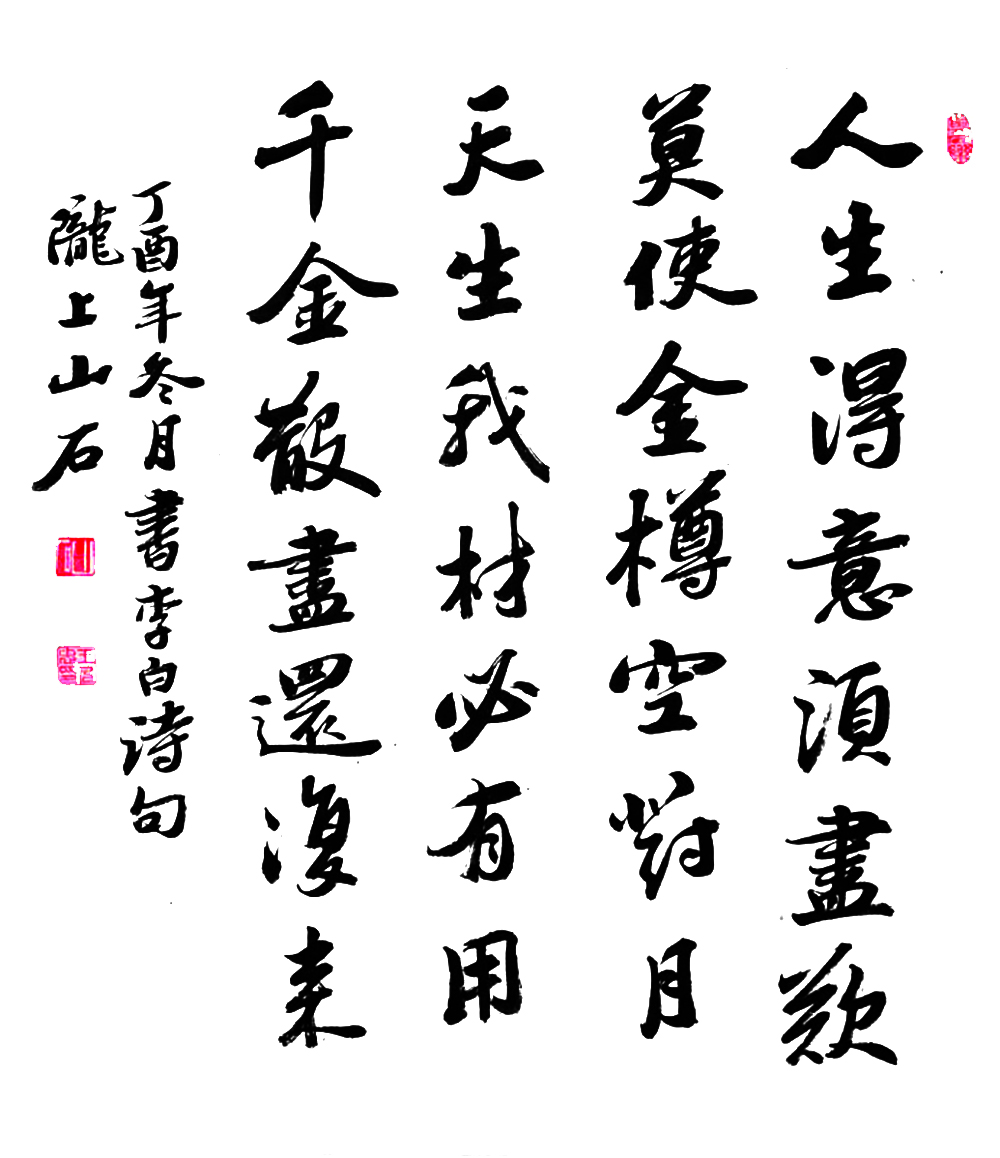 人生得意須盡歡
莫使金樽空對月
天生我材必有用
千金散盡還復来
丁酉年冬月書李白诗句
隴上山石